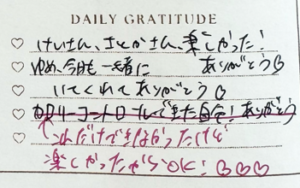 DAILY GRATITUDE
♡ けいさん、さとかさん、楽しかった!
♡ ゆめ、今日も一緒に ありがとう♡
♡ いてくれてありがとう♡
♡ カロリーコントロールできた自分!ありがとう
♡ ↑これだけできなかったけど
楽しかったからOK!♡♡♡